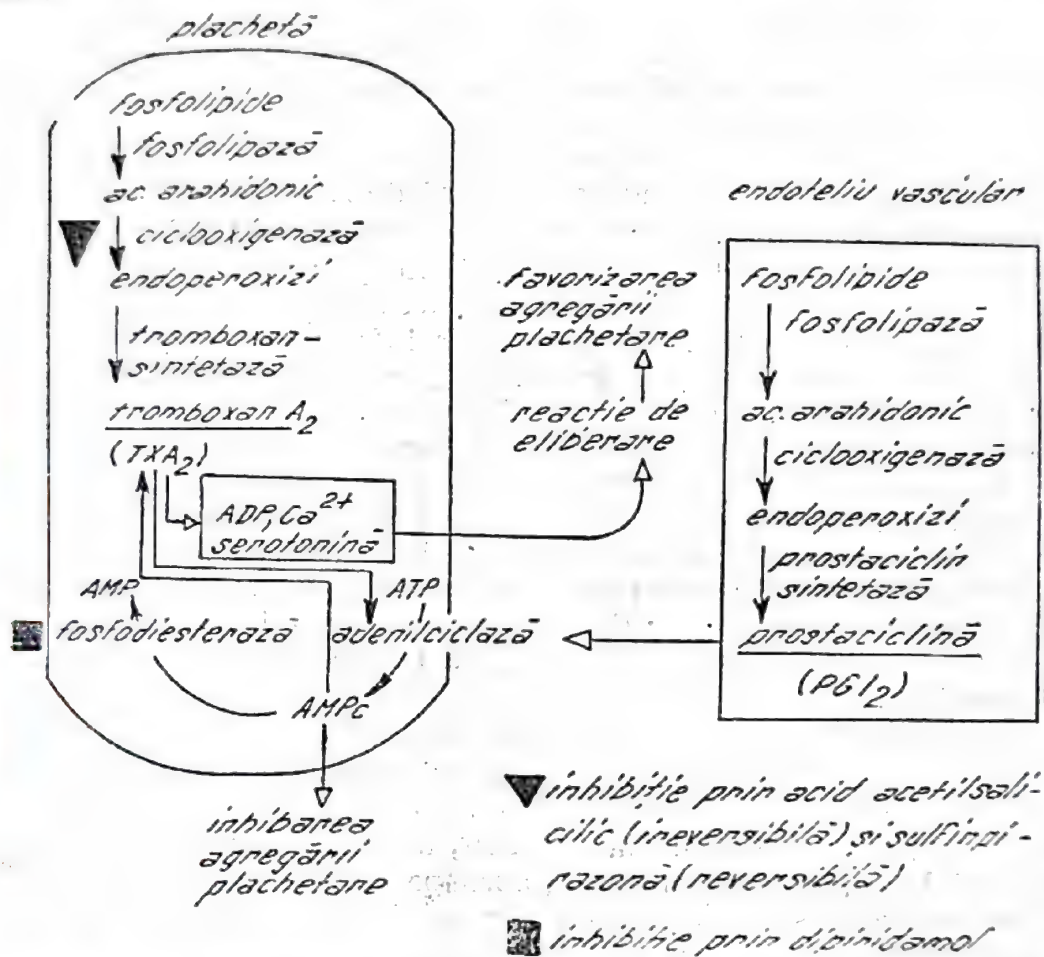 plachetă
fosfolipide
fosfolipază
ac. arahidonic
ciclooxigenază
endoperoxizi
tromboxan-
sintetază
tromboxan A2
(TXA2)
ADP, Ca2+
serotonină
AMP
ATP
fosfodiesterază
adenilciclază
AMPc
inhibarea
agregării
plachetare
favorizarea
agregării
plachetare
reactie de
eliberare
endoteliu vascular
fosfolipide
fosfolipază
ac. arahidonic
ciclooxigenază
endoperoxizi
prostaciclin
sintetază
prostaciclină
(PGI2)
inhibiție prin acid acetilsali-
cilic (ireversibilă) și sulfinpi-
razonă (reversibilă)
inhibiție prin dipiridamol